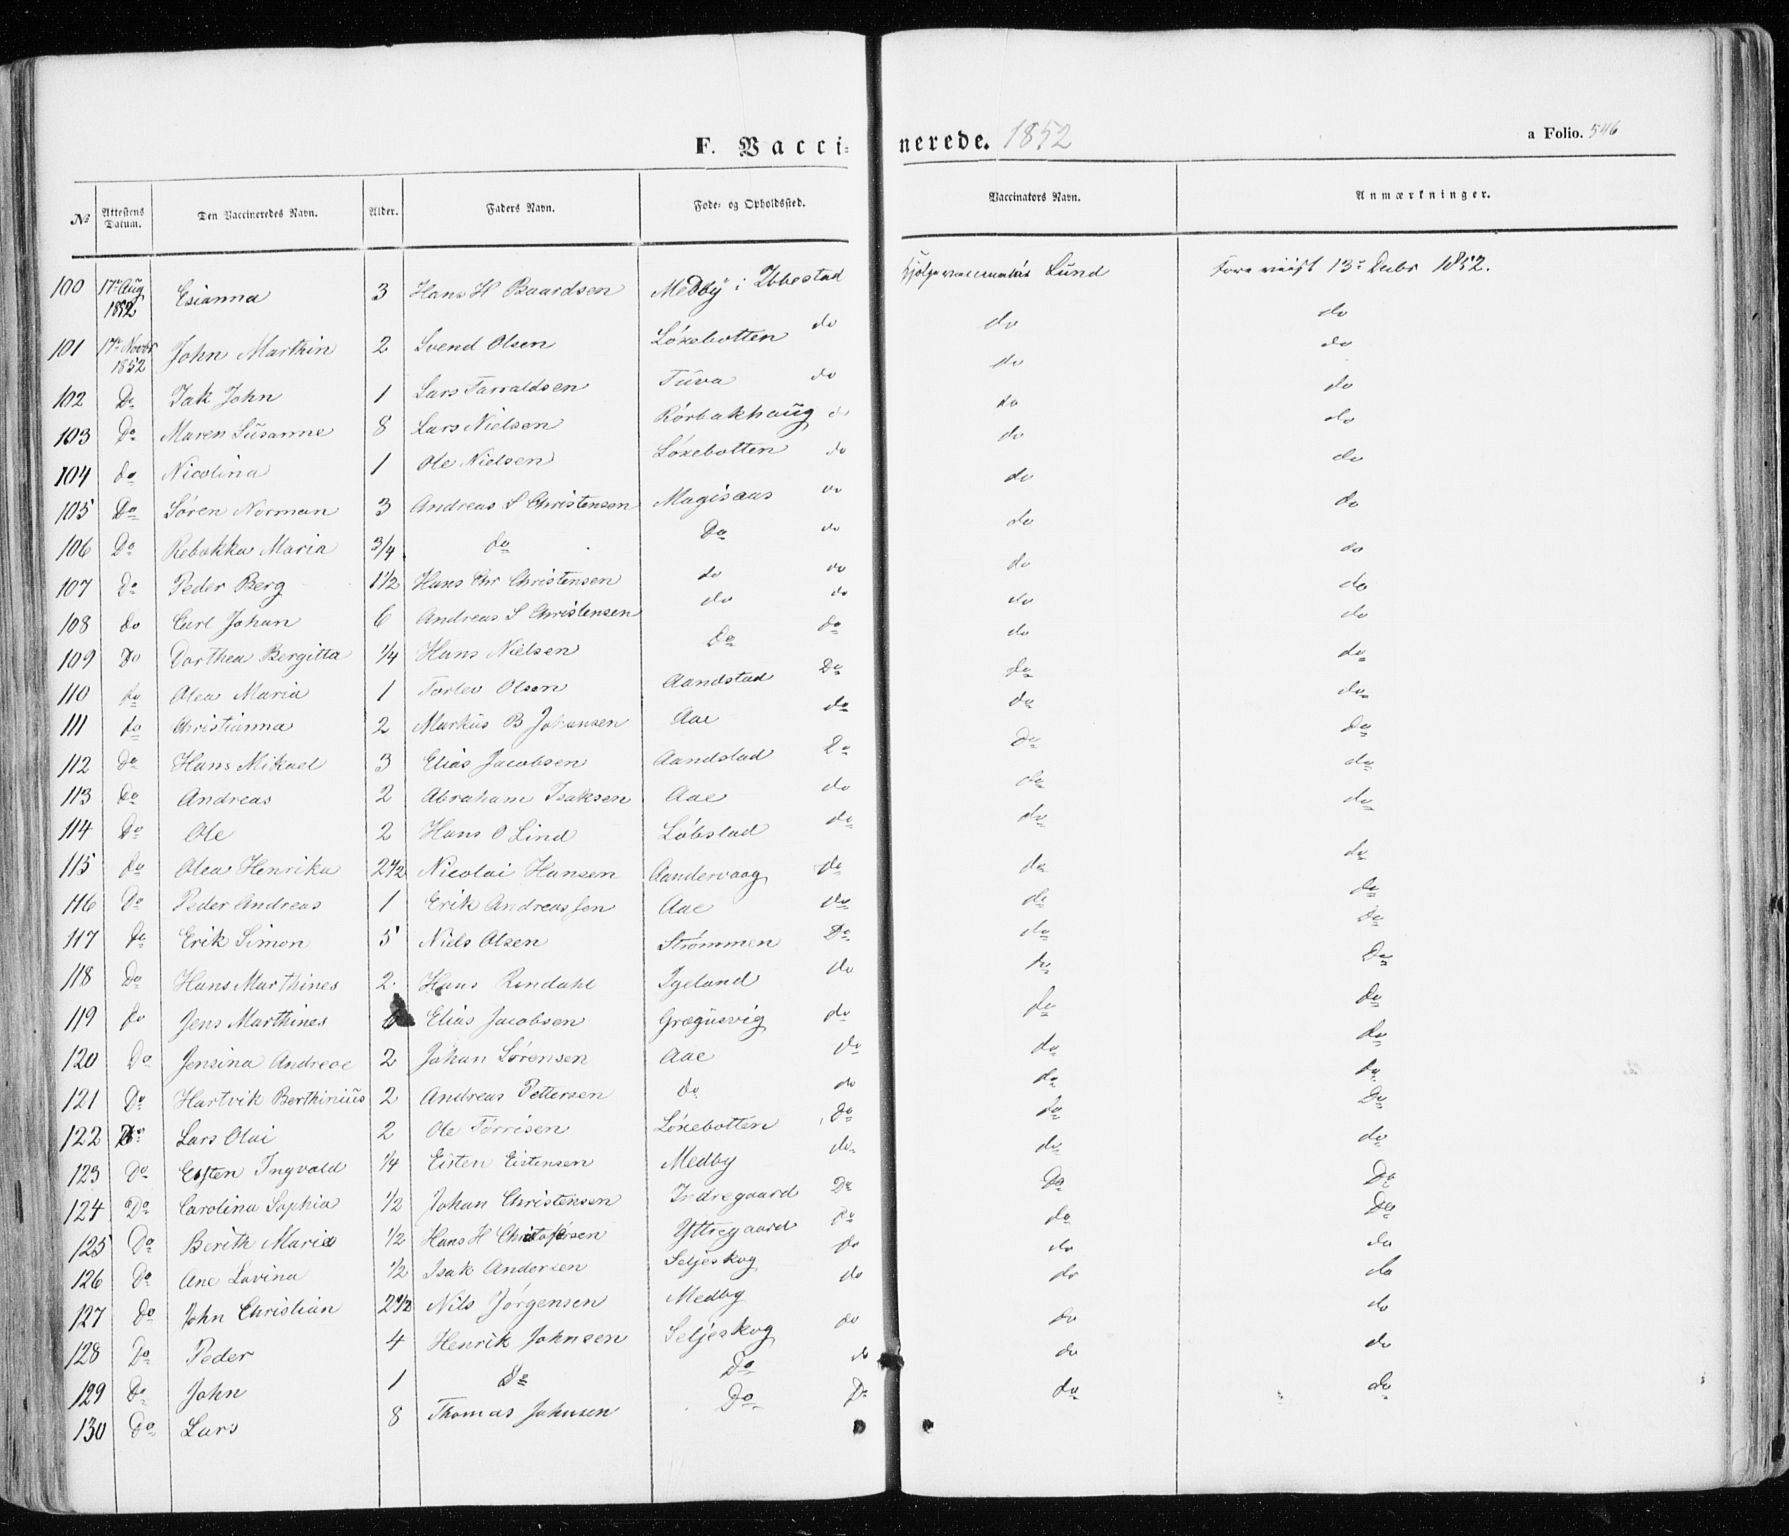 F. Vaccinerede. 1852 a Folio. 546
№ Attestens Datum. Den Vaccineredes Navn. Alder. Faders Navn. Føde- og Opholdssted. Vaccinators Navn. Anmærkninger.
100 17de Aug 1852 Esianna 3 Hans H Baardsen Medby i Ibbestad Hjelpevaccinatør Lund Forevist 13de Decbr 1852.
101 17de Novbr 1852 John Marthin 2 Svend Olsen Löxebotten do do do
102 Do Isak John 1 Lars Tarraldsen Tüva do do do
103 Do Maren Susanne 8 Lars Nielsen Rörbakhaug do do do
104 do Nicolina 1 Ole Nielsen Löxebotten do do do
105 Do Sören Norman 3 Andreas S Christensen Magisaas do do do
106 Do Rebakka Maria 3/4 do Do do do do
107 Do Peder Berg 1 1/2 Hans Chr Christensen do do do do
108 do Carl Johan 6 Andreas S Christensen do do do do
109 do Dorthea Bergitta 1/4 Hans Nielsen Do do do do
110 do Olea Maria 1 Torlev Olsen Aandstad Do do do
111 do Christianna 2 Markus B Johansen Aae do do do
112 do Hans Mikael 3 Elias Jacobsen Aandstad Do Do do
113 Do Andreas 2 Abraham Isaksen Aae do do do
114 Do Ole 2 Hans O Lind Löbstad do do do
115 do Olea Henrika 2 1/2 Nicolai Hansen Aandervaag do do do
116 Do Peder Andreas 1 Erik Andreassen Aae do do do
117 do Erik Simon 5 Niels Olsen Strømmen Do do do
118 Do Hans Marthines 2 Hans Rendahl Igeland do do Do
119 do Jens Marthines Elias Jacobsen Grægusvig do do do
120 Do Jensina Andreae 2 Johan Sörensen Aae do do do
121 Do Hartvik Berthinius 2 Andreas Pettersen do do do do
122 Do Lars Olai 2 Ole Törrisen Löxebotten do do Do
123 Do Eisten Ingvald 1/4 Eisten Eistensen Medby do do do
124 Do Carolina Sophia 1/2 Johan Christensen Indregaard Do Do Do
125 Do Berith Maria 1/2 Hans H Christofersen Yttregaard Do do Do
126 Do Ane Lovina 1/2 Isak Andersen Seljeskog do do do
127 Do John Christian 2 1/2 Nils Jörgensen Medby do do do
128 Do Peder 4 Henrik Johnsen Seljeskog do do do
129 Do John 1 Do Do do do do
130 Do Lars 8 Thomas Johnsen Do Do do do